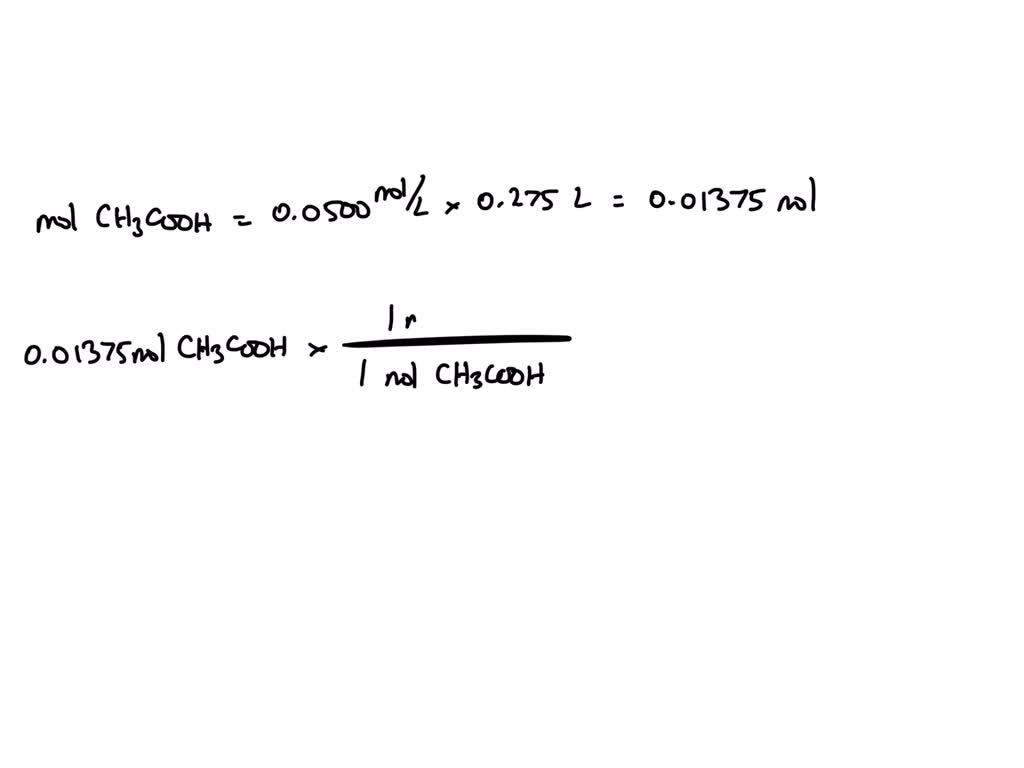 mol CH₃COOH = 0.0500 mol/L × 0.275 L = 0.01375 mol
0.01375 mol CH₃COOH ×
1
1 mol CH₃COOH